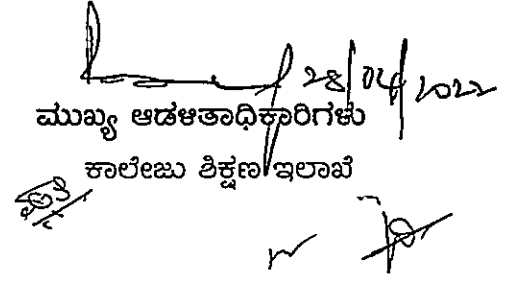 28/04/2022
ಮುಖ್ಯ ಆಡಳಿತಾಧಿಕಾರಿಗಳು
ಕಾಲೇಜು ಶಿಕ್ಷಣ ಇಲಾಖೆ